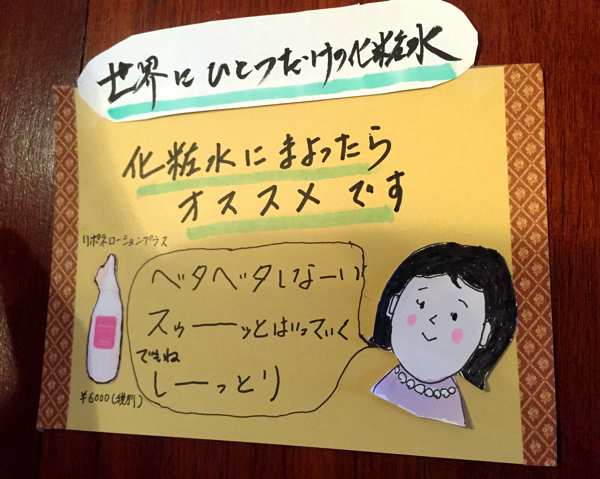 世界にひとつだけの化粧水
化粧水にまよったら
オススメです
リポネローションプラス
ベタベタしなーい
スゥーーッとはいっていく
でもね
しーーっとり
¥6000(税別)